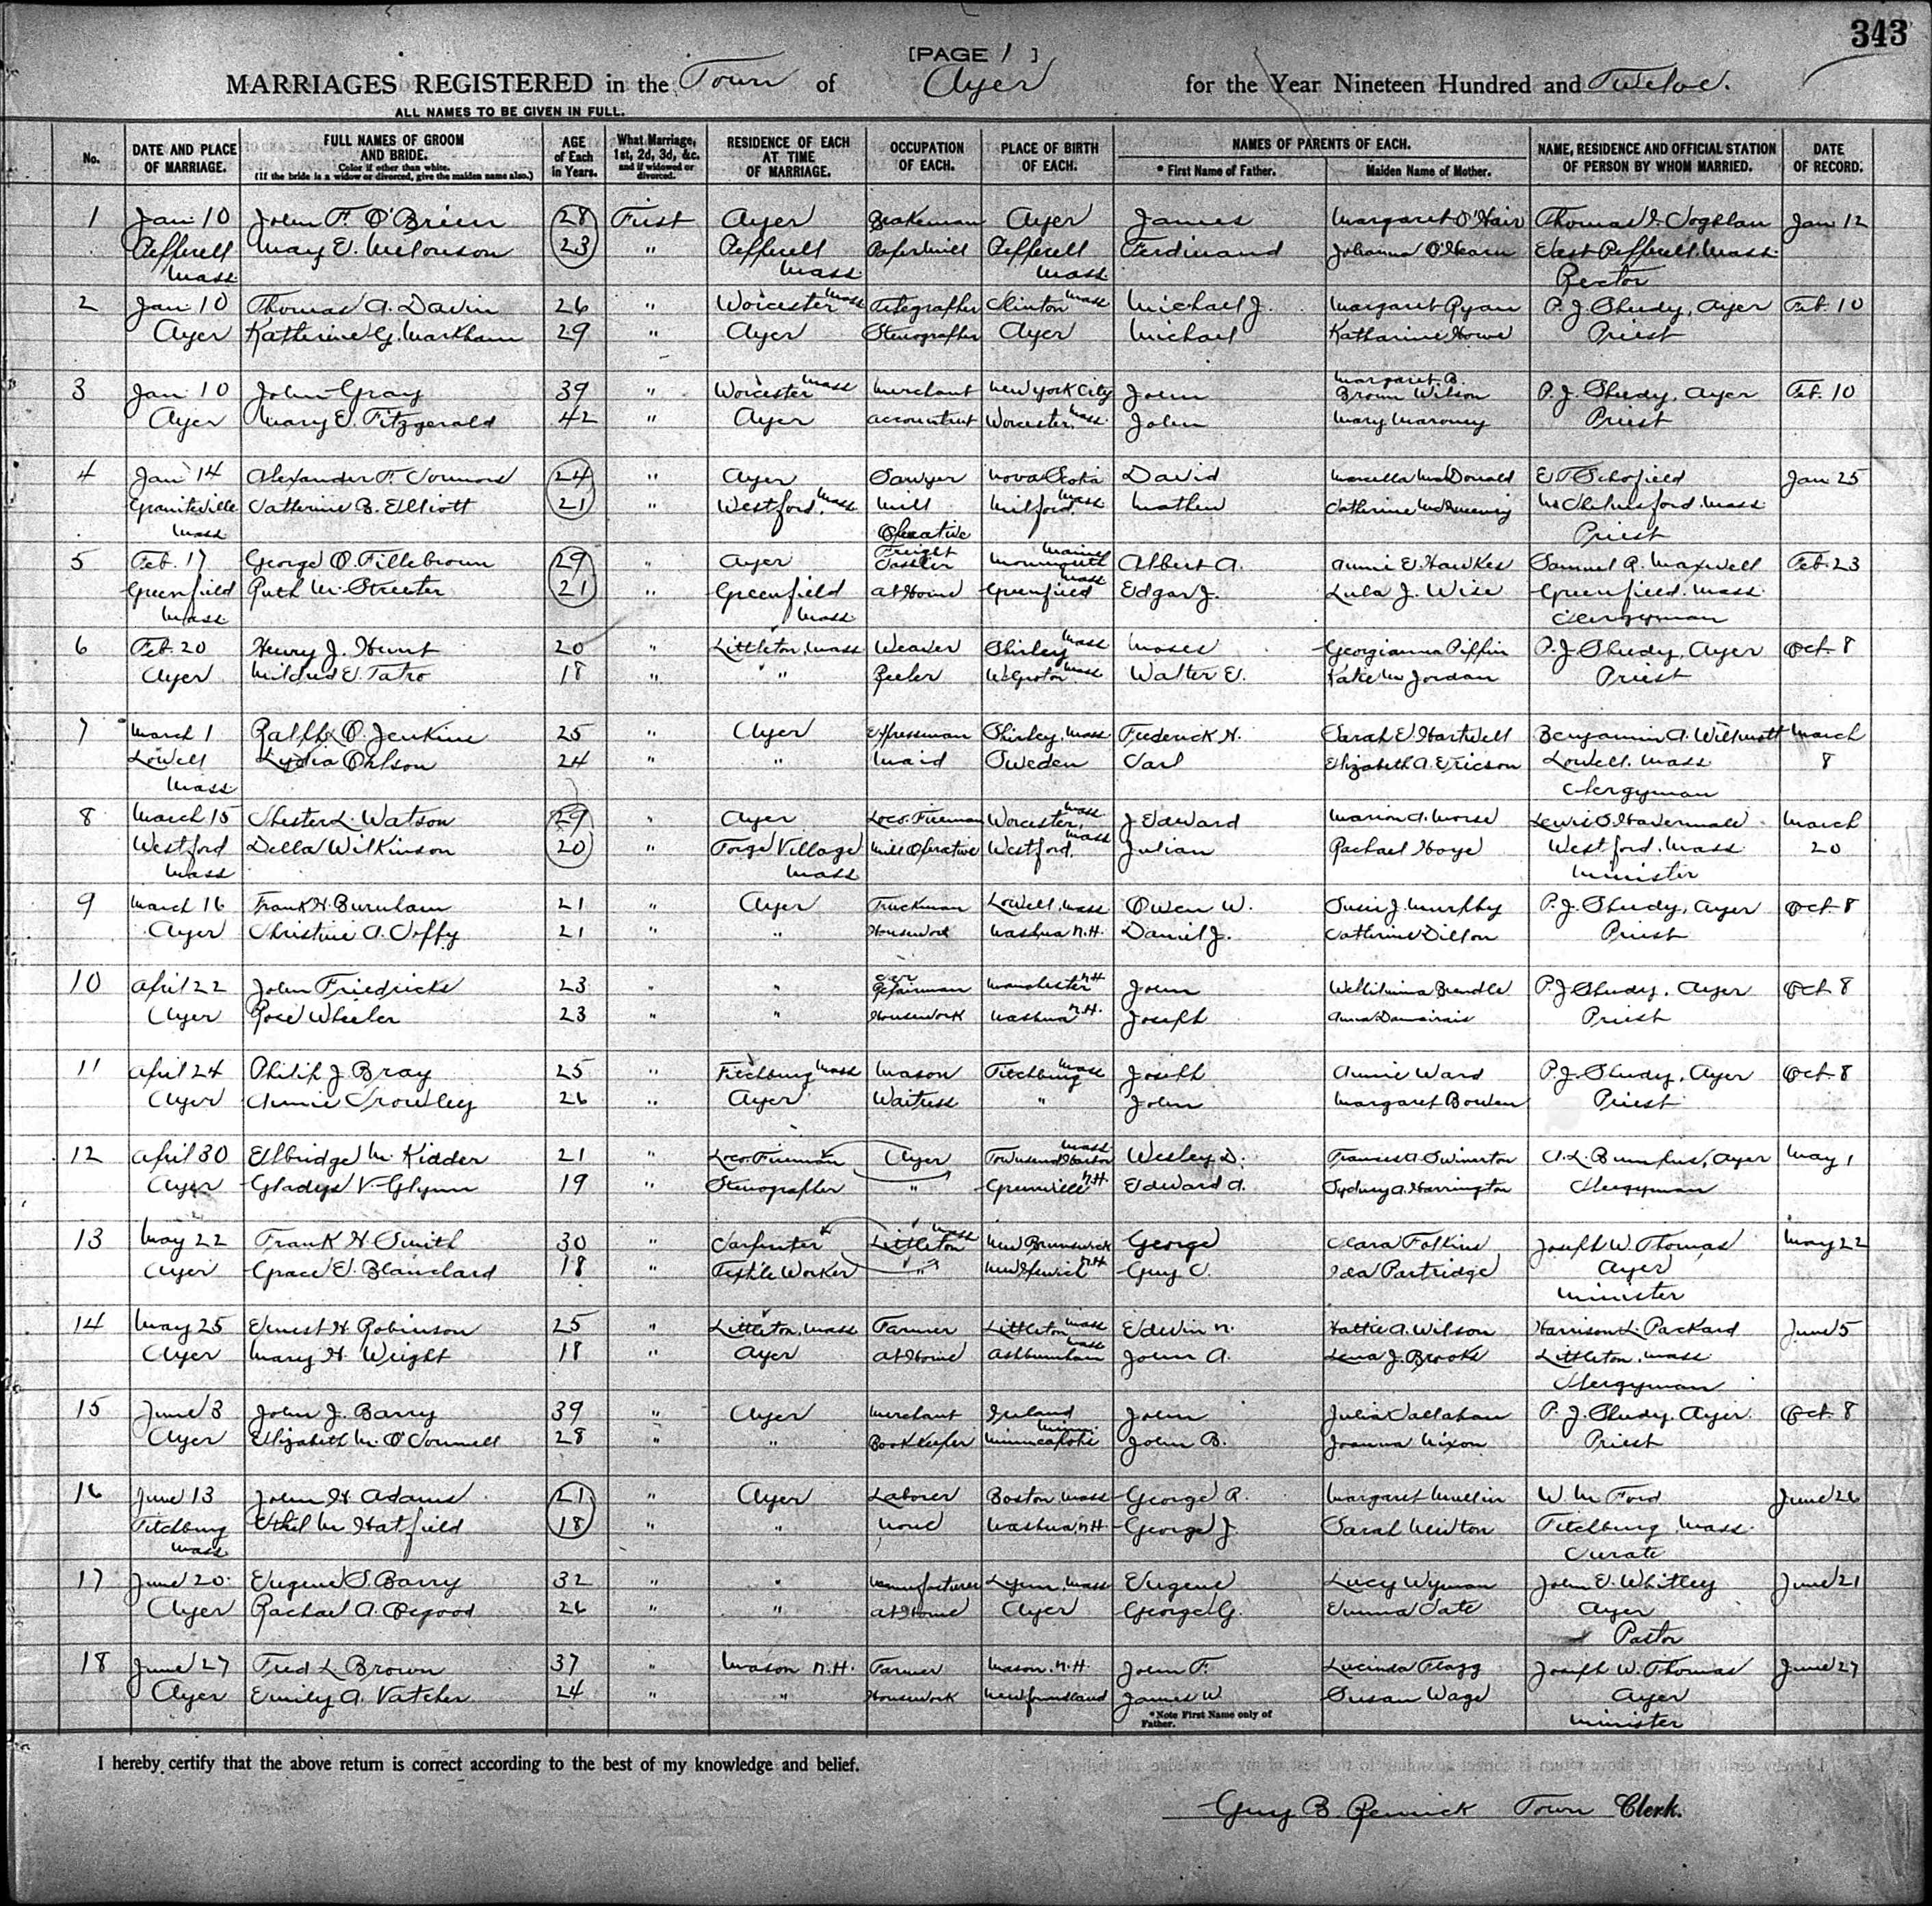 343
[PAGE 1 ]
MARRIAGES REGISTERED in the Town of Ayer for the Year Nineteen Hundred and Twelve.
ALL NAMES TO BE GIVEN IN FULL.
No. DATE AND PLACE OF MARRIAGE. FULL NAMES OF GROOM AND BRIDE. Color if other than white. (If the bride is a widow or divorced, give the maiden name also.) AGE of Each in Years. What Marriage, 1st, 2d, 3d, &c. and if widowed or divorced. RESIDENCE OF EACH AT TIME OF MARRIAGE. OCCUPATION OF EACH. PLACE OF BIRTH OF EACH. NAMES OF PARENTS OF EACH. * First Name of Father. Maiden Name of Mother. NAME, RESIDENCE AND OFFICIAL STATION OF PERSON BY WHOM MARRIED. DATE OF RECORD.
1 Jan 10 John F. O'Brien 28 First Ayer Brakeman Ayer James Margaret O'Hair Thomas F. Coghlan Jan 12
Pepperell May E. 23 " Pepperell Paper Mill Pepperell Ferdinand Johanna O'Hearn East Pepperell. Mass
Mass Mass Mass Rector
2 Jan 10 Thomas A. Davin 26 " Worcester Mass Telegrapher Clinton Mass Michael J. Margaret Ryan P. J. Sheedy, Ayer Feb. 10
Ayer Katherine G. Markham 29 " Ayer Stenographer Ayer Michael Katharine Howe Priest
3 Jan 10 John Gray 39 " Worcester Mass Merchant New York City John Margaret B. Brown Wilson P. J. Sheedy, Ayer Feb. 10
Ayer Mary E. Fitzgerald 42 " Ayer Accountant Worcester, Mass John Mary Maroney Priest
4 Jan 14 Alexander F. 24 " Ayer Sawyer Nova Scotia David Marcella McDonald E T Schofield Jan 25
Graniteville Catherine B. Elliott 21 " Westford, Mass Mill Milford, Mass Mathew Catherine N. Chelmsford. Mass
Mass Operative Priest
5 Feb. 17 George O. Fillebrown 29 " Ayer Freight Monmouth Maine Albert A. Annie E. Hawkes Samuel R. Maxwell Feb. 23
Greenfield Ruth M. Streeter 21 " Greenfield At Home Greenfield Mass Edgar J. Lula J. Wise Greenfield. Mass
Mass Mass Clergyman
6 Feb. 20 Henry J. Hunt 20 " Littleton, Mass Weaver Shirley Mass Moses Georgianna Piffin P. J. Sheedy, Ayer Oct. 8
Ayer Mildred E. Tatro 18 " " Reeler W. Groton Mass Walter E. Kate M Jordan Priest
7 March 1 Ralph O. Jenkins 25 " Ayer Expressman Shirley, Mass Frederick H. Sarah E Hartwell Benjamin A. Willmott March
Lowell Lydia Ohlson 24 " " Maid Sweden Carl Elizabeth A. Ericson Lowell. Mass 8
Mass Clergyman
8 March 15 Chester L. Watson 29 " Ayer Loco. Fireman Worcester Mass J Edward Marion A. Morse Lewis Havermale March
Westford Della Wilkinson 20 " Forge Village Mill Operative Westford, Mass Julian Rachael Hoye Westford. Mass 20
Mass Mass Minister
9 March 16 Frank H. Burnham 21 " Ayer Truckman Lowell, Mass Owen W. Susie J. Murphy P. J. Sheedy, Ayer Oct. 8
Ayer Christine A. Coffy 21 " " Housework Nashua N.H. Daniel J. Catherine Dillon Priest
10 April 22 John Friedricks 23 " " Car Repairman Manchester N.H John Brendle P. J. Sheedy, Ayer Oct 8
Ayer Rose Wheeler 23 " " Housework Nashua N.H. Joseph Anna Priest
11 April 24 Philip J. Bray 25 " Fitchburg Mass Mason Fitchburg Mass Joseph Annie Ward P. J. Sheedy, Ayer Oct. 8
Ayer Annie Crowley 26 " Ayer Waitress " John Margaret Bowen Priest
12 April 30 Elbridge M. Kidder 21 " Loco. Fireman Ayer Townsend Harbor Mass Wesley D. Frances A. Swinerton A. L. Bumpus, Ayer May 1
Ayer Gladys V. Glynn 19 " Stenographer " Greenville N.H Edward A. Sydney A. Harrington Clergyman
13 May 22 Frank H. Smith 30 " Carpenter Littleton Mass New Brunswick George Clara Folkins Joseph W. Thomas May 22
Ayer Grace E. Blanchard 18 " Textile Worker " New Ipswich N.H Guy C. Ida Partridge Ayer
Minister
14 May 25 Ernest H. Robinson 25 " Littleton, Mass Farmer Littleton Mass Edwin N. Hattie A. Wilson Harrison L. Packard June 5
Ayer Mary H. Wright 18 " Ayer At Home Ashburnham Mass John A. Lena J. Brooks Littleton, Mass
Clergyman
15 June 3 John J. Barry 39 " Ayer Merchant Ireland John Julia Callahan P. J. Sheedy. Ayer. Oct. 8
Ayer Elizabeth M. O'Connell 28 " " Bookkeeper Minneapolis Minn. John B. Joanna Nixon Priest
16 June 13 John H Adams 21 " Ayer Laborer Boston, Mass George R. Margaret Mullin W. M Ford June 26
Fitchburg Ethel M. Hatfield 18 " " None Nashua, N.H. George J. Sarah Newton Fitchburg, Mass.
Mass Curate
17 June 20. Eugene S. Barry 32 " " Manufacturer Lynn, Mass Eugene Lucy Wyman John E. Whitley June 21
Ayer Rachael A. Osgood 26 " " At Home Ayer George G. Emma Tate Ayer
Pastor
18 June 27 Fred L. Brown 37 " Mason N.H. Farmer Mason. N.H. John F. Lucinda Flagg Joseph W. Thomas June 27
Ayer Emily A. Vatcher 24 " " Housework Newfoundland James W. Susan Wage Ayer
*Note First Name only of Father. Minister
I hereby certify that the above return is correct according to the best of my knowledge and belief.
Guy B. Remick Town Clerk.